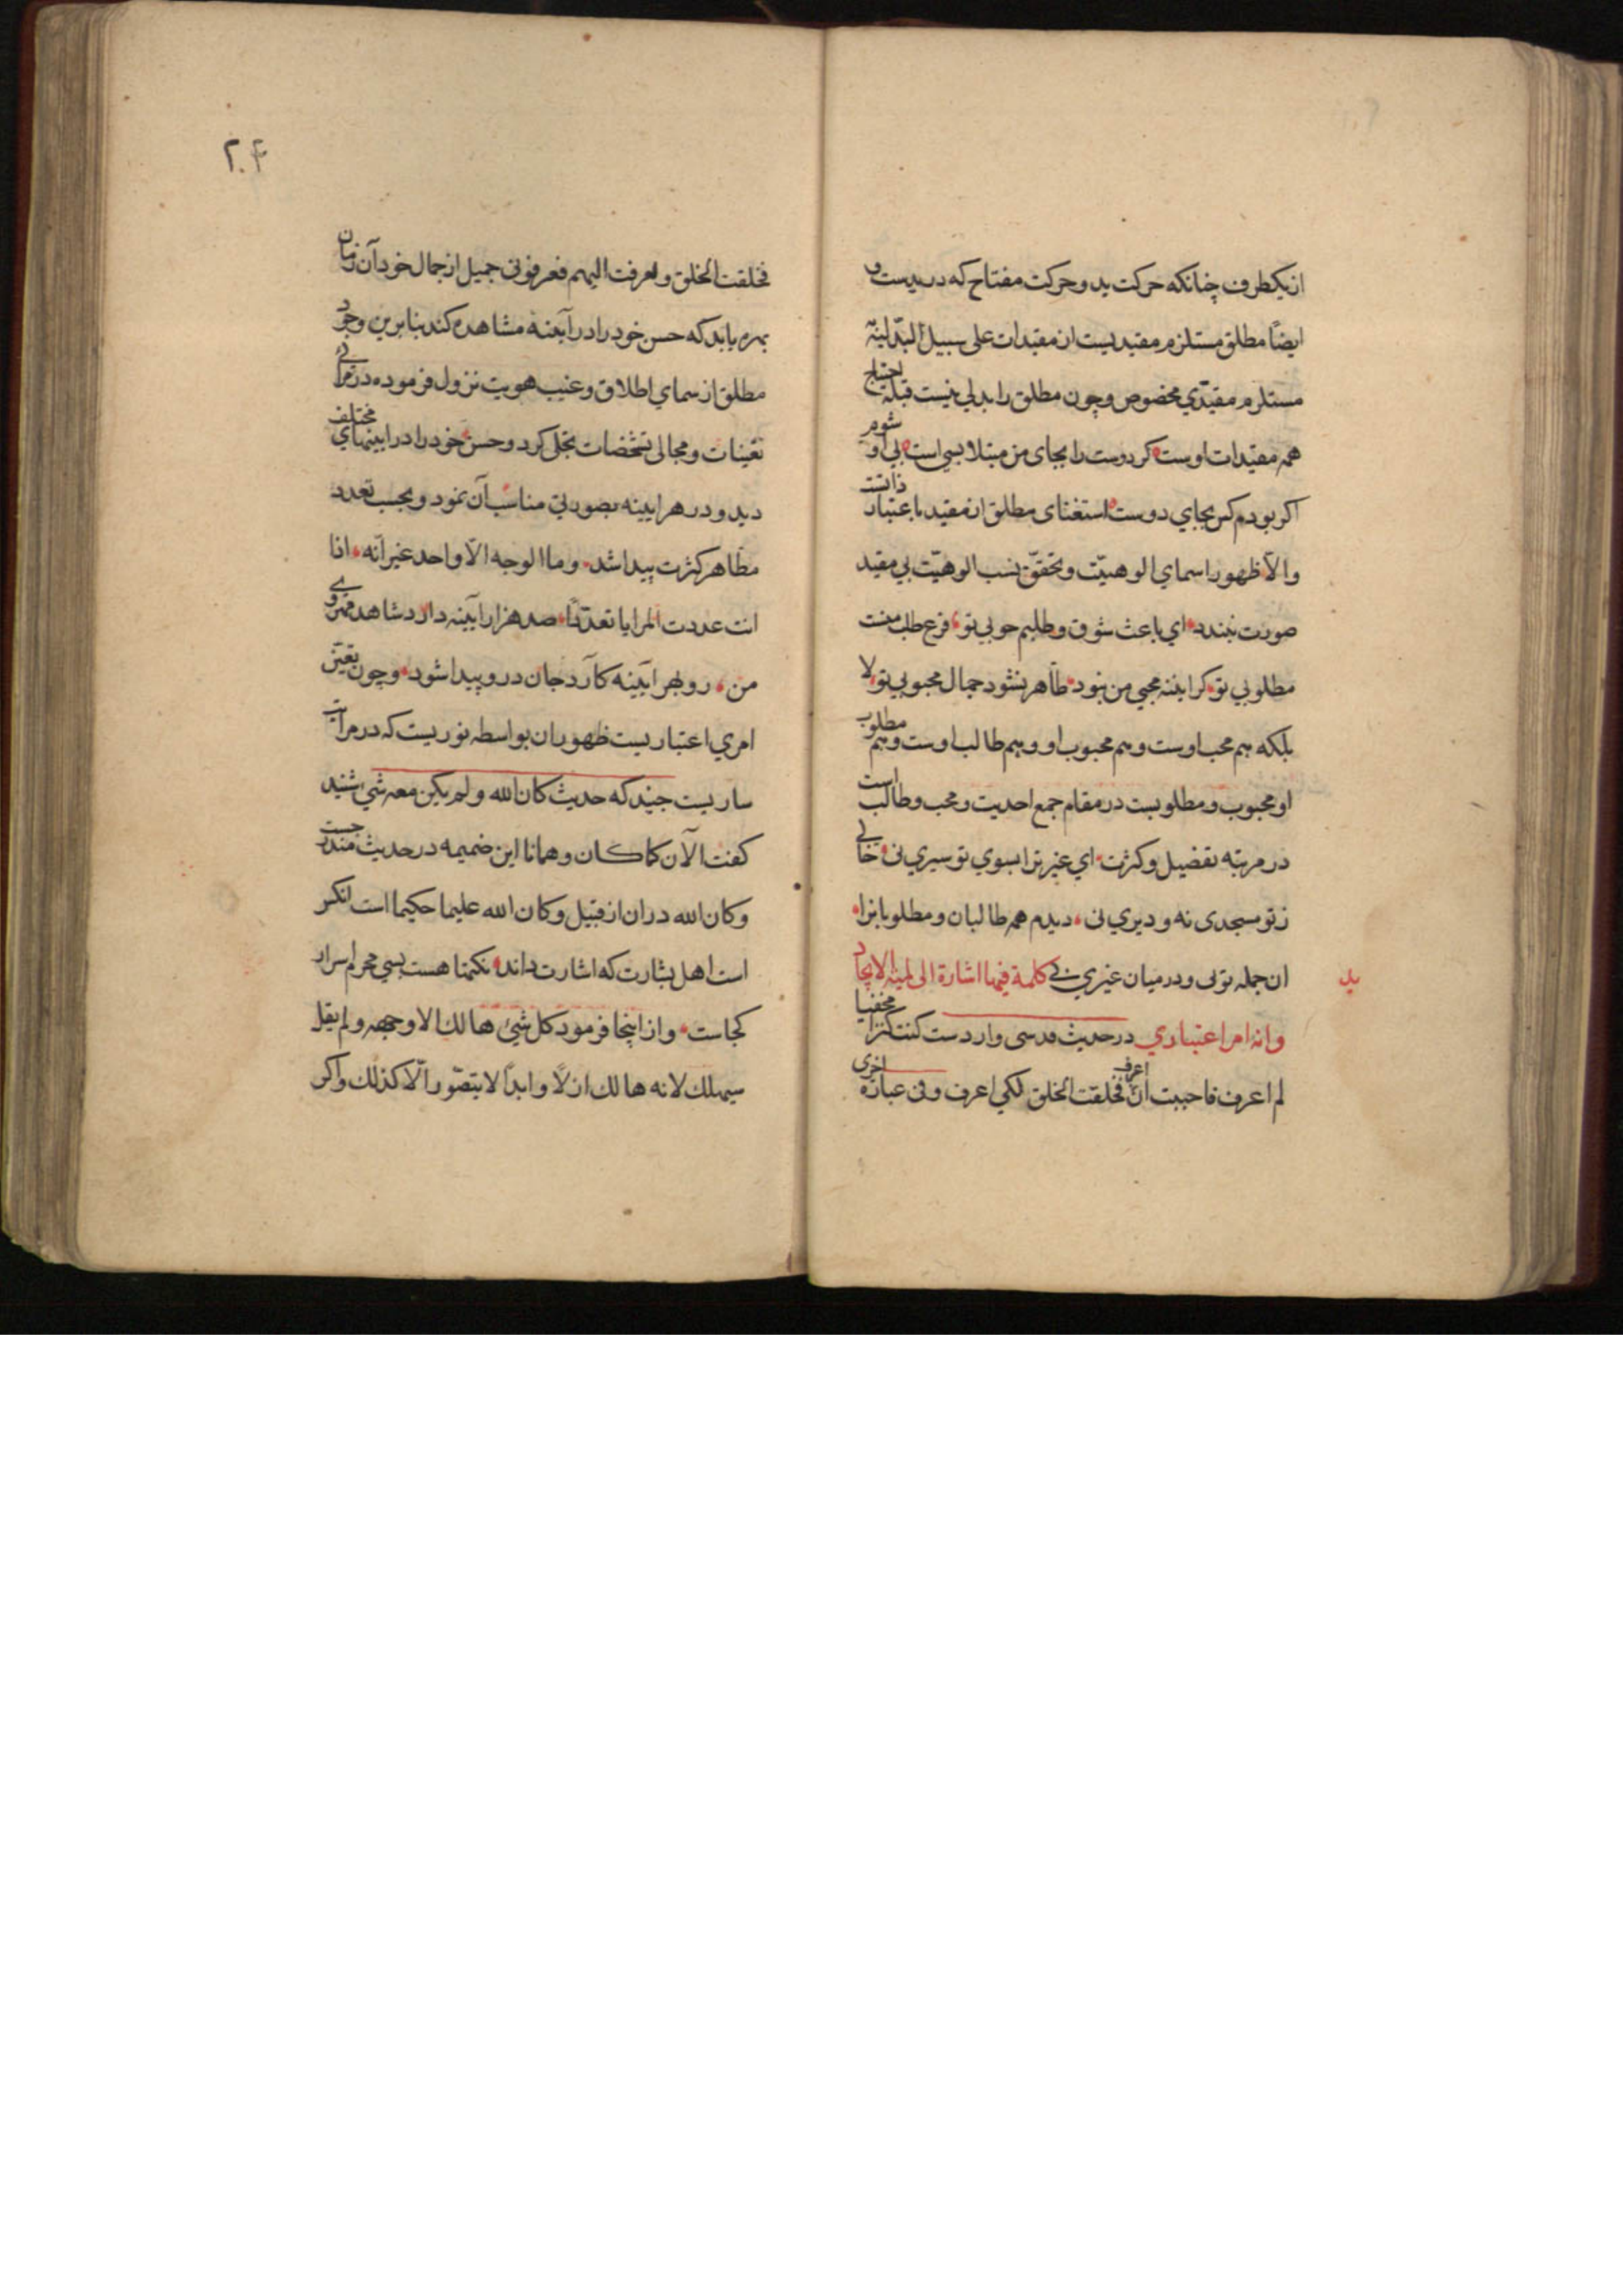 از یکطرف چنانکه حرکت ید و حرکت مفتاح که در یدست و
ایضاً مطلق مستلزم مقیدیست از مقیدات علی سبیل البدلیّة
مستلزم مقیّدی مخصوص و چون مطلق را بدلی نیست قبلهٔ احتیاج
همه مقیّدات اوست کر دوست را بجای من مبتلا بسی است بی او شوم
اکر بودم کس بجای دوست استغنای مطلق از مقید باعتبار ذاتست
والّا ظهور اسمای الوهیّت و تحقّق نسب الوهیّت بی مقید
صورت نبندد ای باعث شوق و طلبم خوبی تو فرع طلب منست
مطلوبی تو کر آیینه محبی من نبود ظاهر نشود جمال محبوبی تو لا
بلکه هم محب اوست و هم محبوب او و هم طالب اوست و هم مطلوب
او محبوب و مطلوبست در مقام جمع احدیت و محب و طالب است
در مرتبه تفضیل و کثرت ای غیر ترا بسوی تو سیری نی خالی
ز تو مسجدی نه و دیری نی دیدم همه طالبان و مطلوبانرا
ان جمله تویی و در میان غیری نی کلمة فیها اشارة الی لمیة الایجاد
ید
وانه امر اعتباری در حدیث قدسی واردست کنت کنزا مخفیا
لم اعرف فاحببت ان اعرف فخلقت الخلق لکی اعرف و فی عبارة اخری
۲۰۴
فخلقت الخلق و تعرفت الیهم فعرفونی جمیل از جمال خود آن زمان
بهره یابد که حسن خود را در آینه مشاهده کند بنابرین وجود
مطلق از سمای اطلاق و غیب هویت نزول فرموده در مرائی
تعینات و مجالی تشخصات تجلی کرد و حسن خود را در ایینهای مختلف
دید و در هر ایینه بصورتی مناسب آن نمود و بحسب تعدد
مظاهر کثرت پیدا شد و ما الوجه الّا واحد غیر انّه اذا
انت عددت المرایا تعدّدا صد هزار آیینه دارد شاهد مهروی
من رو بهر آیینه کآرد جان درو پیدا شود و چون تعیّن
امری اعتباریست ظهور ان بواسطه نوریست که در مرآت
ساریست جنید که حدیث کان الله و لم یکن معه شیء شنید
کفت الآن کما کان و همانا این ضمیمه در حدیث مندرجست
و کان الله در ان از قبیل و کان الله علیما حکیما است انکس
است اهل بشارت که اشارت داند نکتها هست بسی محرم اسرار
کجاست و از اینجا فرمود کل شیء هالك الا وجهه و لم یقل
سیهلك لانه هالك ازلًا و ابدًا لا یتصّور الّا کذلك و اکر